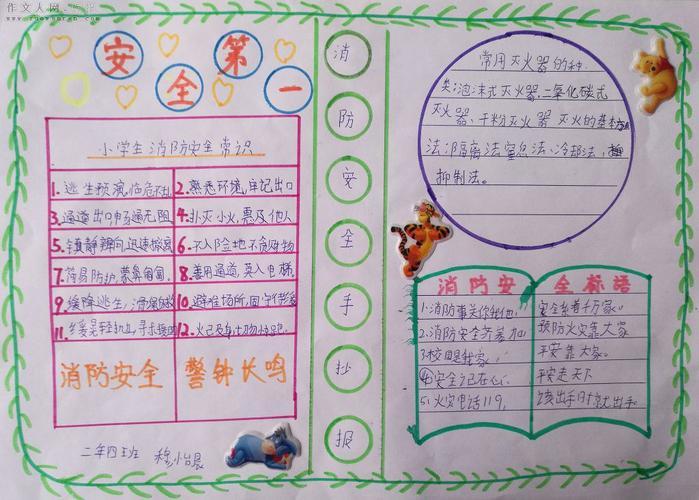 作文人网
安全第一
小学生消防安全常识
1.逃生预演,临危不乱
2.熟悉环境,牢记出口
3.通道出口,畅通无阻
4.扑灭小火,惠及他人
5.镇静辨向,迅速撤离
6.不入险地,不贪财物
7.简易防护,蒙鼻匍匐
8.善用通道,莫入电梯
9.缓降逃生,滑绳自救
10.避难场所,固守待援
11.缓晃轻抛,寻求援助
12.火已及身,切勿惊跑
消防安全 警钟长鸣
二年四班
消防安全手抄报
常用灭火器的种
类:泡沫式灭火器、二氧化碳式
灭火器、干粉灭火器 灭火的基本方
法:隔离法、窒息法、冷却法、
抑制法。
消防安全标语
1.消防事关你我他, 安全系着千万家。
2.消防安全齐参加 预防火灾靠大家
3.校园是我家, 平安靠大家。
④安全记在心 平安走天下
5.火灾电话119, 该出手时就出手